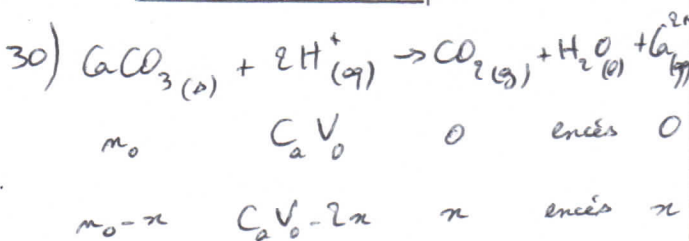 30) CaCO₃(s) + 2H⁺(aq) → CO₂(g) + H₂O(l) + Ca²⁺(aq)
n₀ CₐV₀ 0 encés 0
n₀-x CₐV₀-2x x encés x